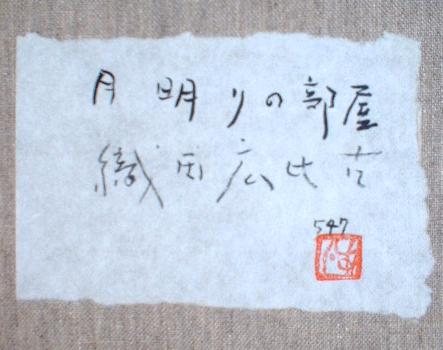 月明りの部屋
織田広比古
547